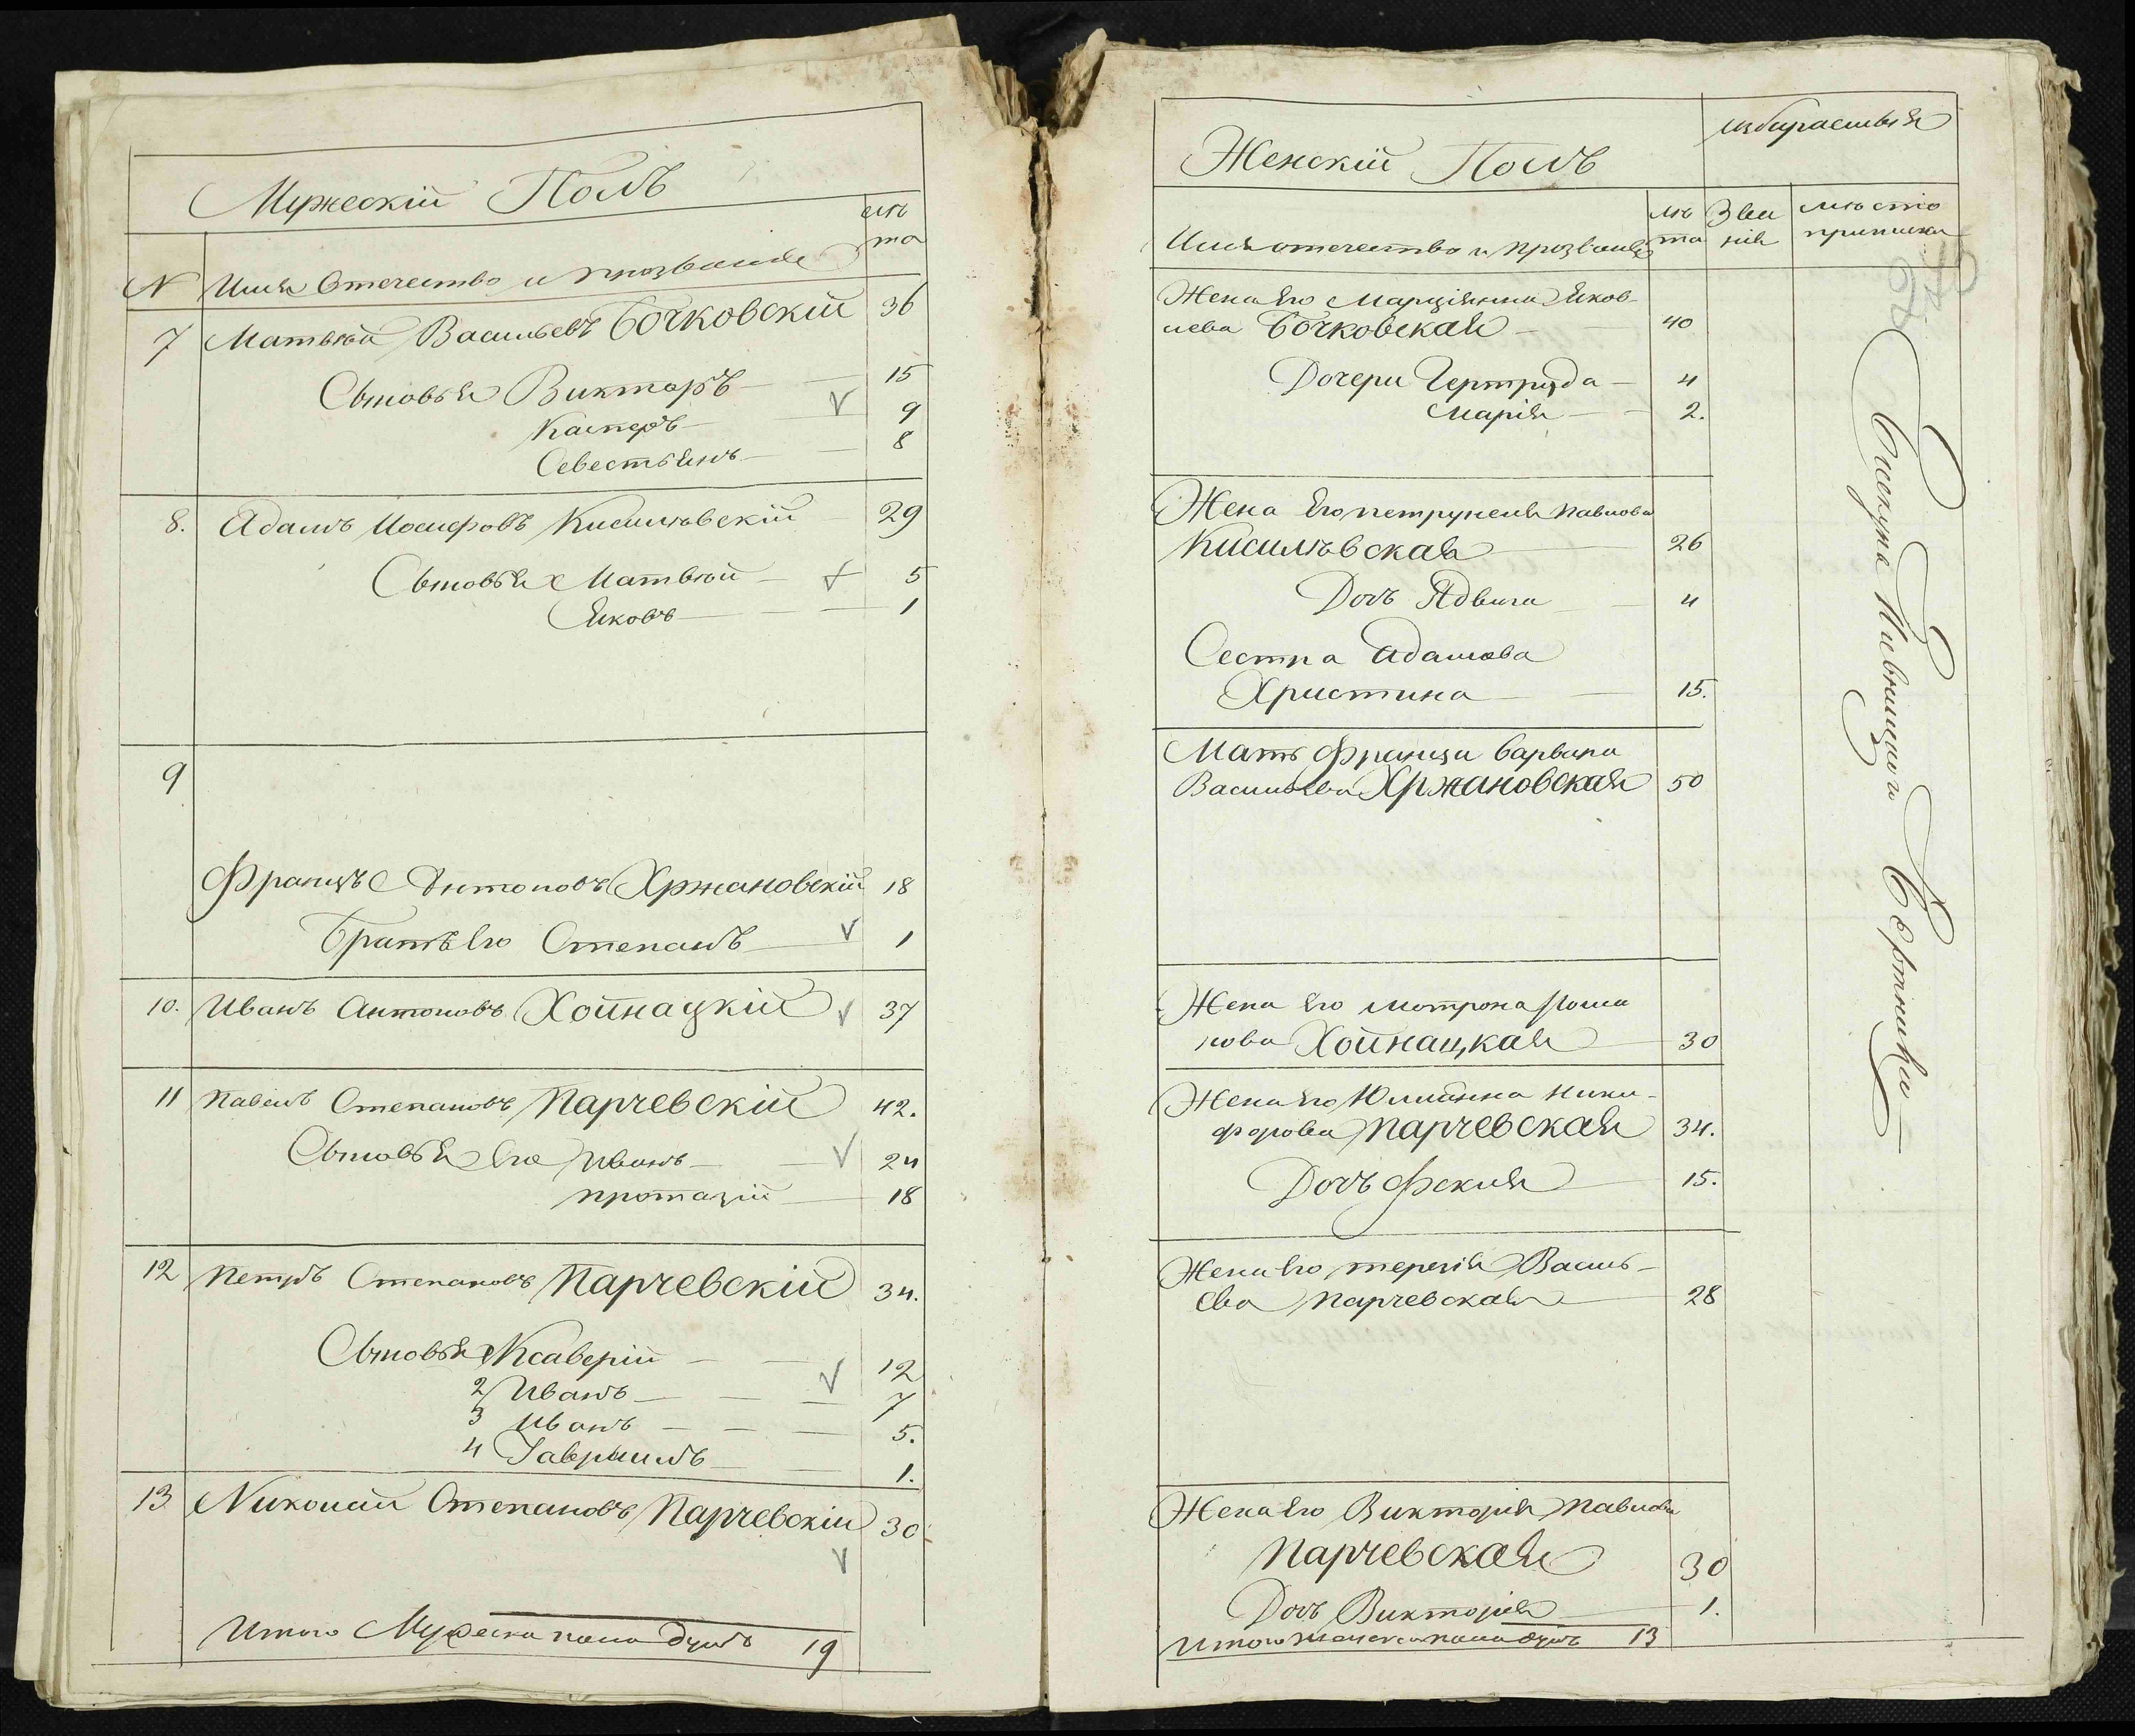 Мужескій Полъ
лѣ
та
N Имя Отечество и прозвание
7 Матвѣй Васильевъ Бочковскій 36
Сыновья Викторъ — 15
Касперъ — 9
Севестьянъ — 8
8. Адамъ Иосифовъ Кисилѣвскій 29
Сыновья Матвѣй — 5
Яковъ — 1
9
Францъ Антоновъ Хржановскій 18
Братъ Его Степанъ — 1
10. Иванъ Антоновъ Хойнацкій 37
11 Павелъ Степановъ Парчевскій 42.
Сыновья Его Иванъ — 24
протазій — 18
12 Петръ Степановъ Парчевскій 34.
Сыновья Ксаверій — 12
2 Иванъ — 7
3 Иванъ — 5.
4 Гаврыилъ — 1.
13 Николай Степановъ Парчевскій 30
Итого Мужеска пола душъ 19
Женскій Полъ
Имя отечество и прозвание
лѣ
та
Зва
ніе
мѣсто
приписки
Жена Его Марціянна Яков-
лева Бочковская — 40
Дочери Гертруда — 4
Марія — 2.
Жена Его петрунеля Павлова
Кисилѣвская — 26
Дочь Ядвига — 4
Сестра Адамова
Христина — 15.
Мать Франца Варвара
Васильева Хржановская 50
Жена Его Мотрона Рома
нова Хойнацкая — 30
Жена Его Юлиянна Ники-
форова Парчевская 34.
Дочь Фекля — 15.
Жена Его терезія Василь-
ева Парчевская — 28
Жена Его Викторія Павлова
Парчевская 30
Дочь Викторія — 1.
Итого женска пола душъ 13